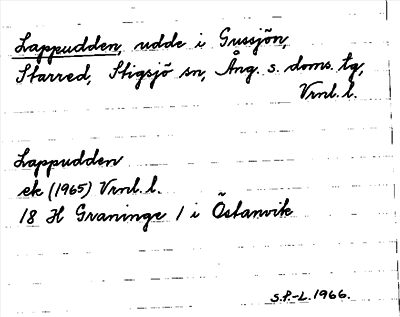 Lappudden, udde i Gussjön,
Starred, Stigsjö sn, Ång. s. doms. tg,
Vrnl. l.
Lappudden
ek (1965) Vrnl. l.
18 H Graninge 1 i Östanvik
S.P.-L. 1966.